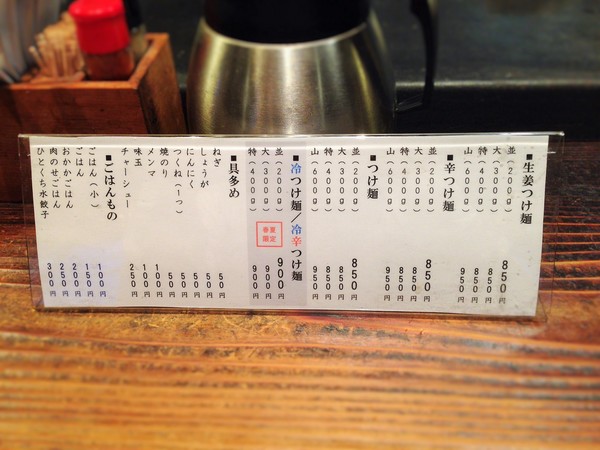 ■生姜つけ麺
並(200g) 850円
大(300g) 850円
特(400g) 850円
山(600g) 950円
■辛つけ麺
並(200g) 850円
大(300g) 850円
特(400g) 850円
山(600g) 950円
■つけ麺
並(200g) 850円
大(300g) 850円
特(400g) 850円
山(600g) 950円
■冷つけ麺/冷辛つけ麺
春夏限定
並(250g) 900円
大(300g) 900円
特(400g) 900円
■具多め
ねぎ 50円
しょうが 50円
にんにく 50円
つくね(一つ) 50円
焼のり 50円
メンマ 100円
味玉 100円
チャーシュー 250円
■ごはんもの
ごはん(小) 100円
ごはん 150円
おかかごはん 200円
肉のせごはん 250円
ひとくち水餃子 300円